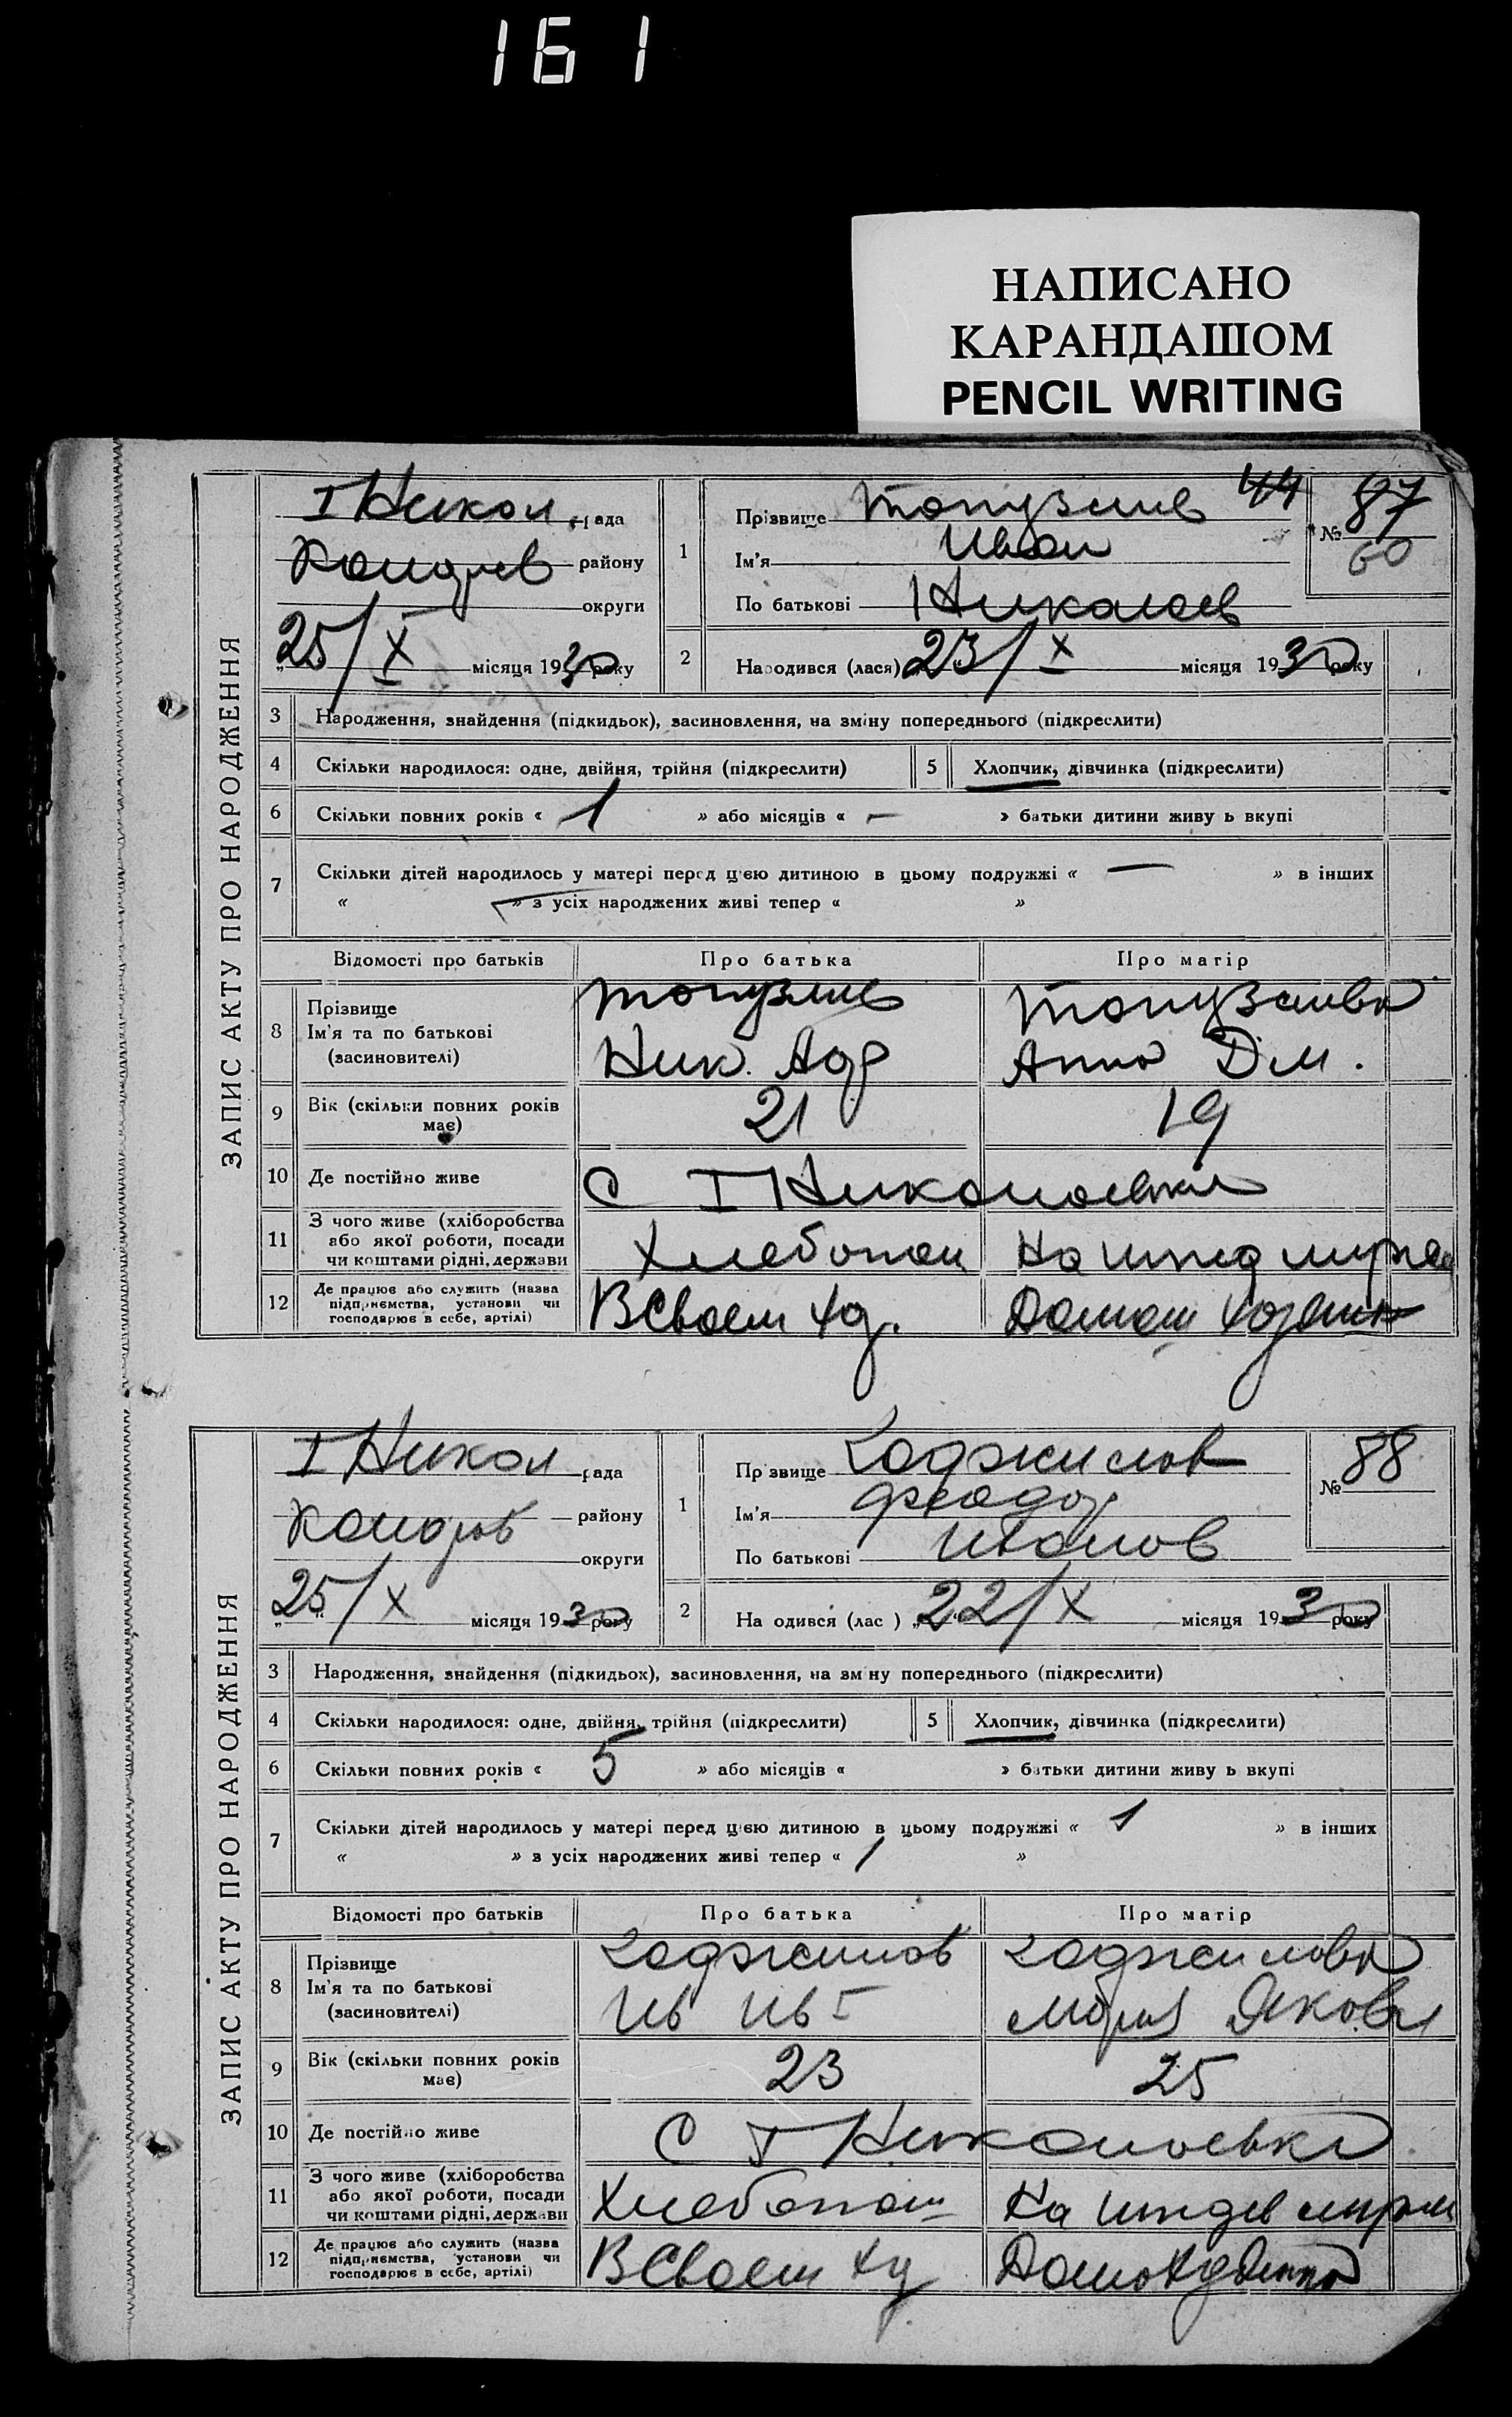 161
НАПИСАНО
КАРАНДАШОМ
PENCIL WRITING
ЗАПИС АКТУ ПРО НАРОДЖЕННЯ
I Никол рада
району
округи
25/X місяця 1930 року
1
Прізвище Топузлиев 44
Ім'я Иван
По батькові Николаев
№ 87
60
2 Народився (лася) 23/X місяця 1930 року
3 Народження, знайдення (підкидьок), засиновлення, на зміну попереднього (підкреслити)
4 Скільки народилося: одне, двійня, трійня (підкреслити) 5 Хлопчик, дівчинка (підкреслити)
6 Скільки повних років « 1 » або місяців « — » батьки дитини живу ь вкупі
7 Скільки дітей народилось у матері перед цією дитиною в цьому подружжі « — » в інших
« — » з усіх народжених живі тепер « »
Відомості про батьків Про батька Про матір
8 Прізвище
Ім'я та по батькові
(засиновителі)
Ник. Анна Дм.
9 Вік (скільки повних років
має) 21 19
10 Де постійно живе С I Николаевка
11 З чого живе (хліборобства
або якої роботи, посади
чи коштами рідні, держави Хлебопаш На ижд мужа
12 Де працює або служить (назва
підприємства, установи чи
господарює в себе, артілі) В своем хоз. Домаш хозяйка
ЗАПИС АКТУ ПРО НАРОДЖЕННЯ
I Никол рада
району
округи
25/X місяця 1930 року
1
Пр звище Хаджинов
Ім'я Феодор
По батькові Иванов
№ 88
2 На одився (лас ) „22/X місяця 1930 року
3 Народження, знайдення (підкидьох), засиновлення, на зм ну попереднього (підкреслити)
4 Скільки народилося: одне, двійня, трійня (підкреслити) 5 Хлопчик, дівчинка (підкреслити)
6 Скільки повних років « 5 » або місяців « » батьки дитини живу ь вкупі
7 Скільки дітей народилось у матері перед цією дитиною в цьому подружжі « 1 » в інших
« » з усіх народжених живі тепер « 1 »
Відомості про батьків Про батька Про матір
8 Прізвище
Ім'я та по батькові
(засиновителі)
Хаджинов Хаджинова
Ив Ив Мария Яковл
9 Вік (скільки повних років
має) 23 25
10 Де постійно живе С I Николаевка
11 З чого живе (хліборобства
або якої роботи, посади
чи коштами рідні, держави Хлебопаш На
12 Де працює або служить (назва
підприємства, установи чи
господарює в себе, артілі) В своем хоз